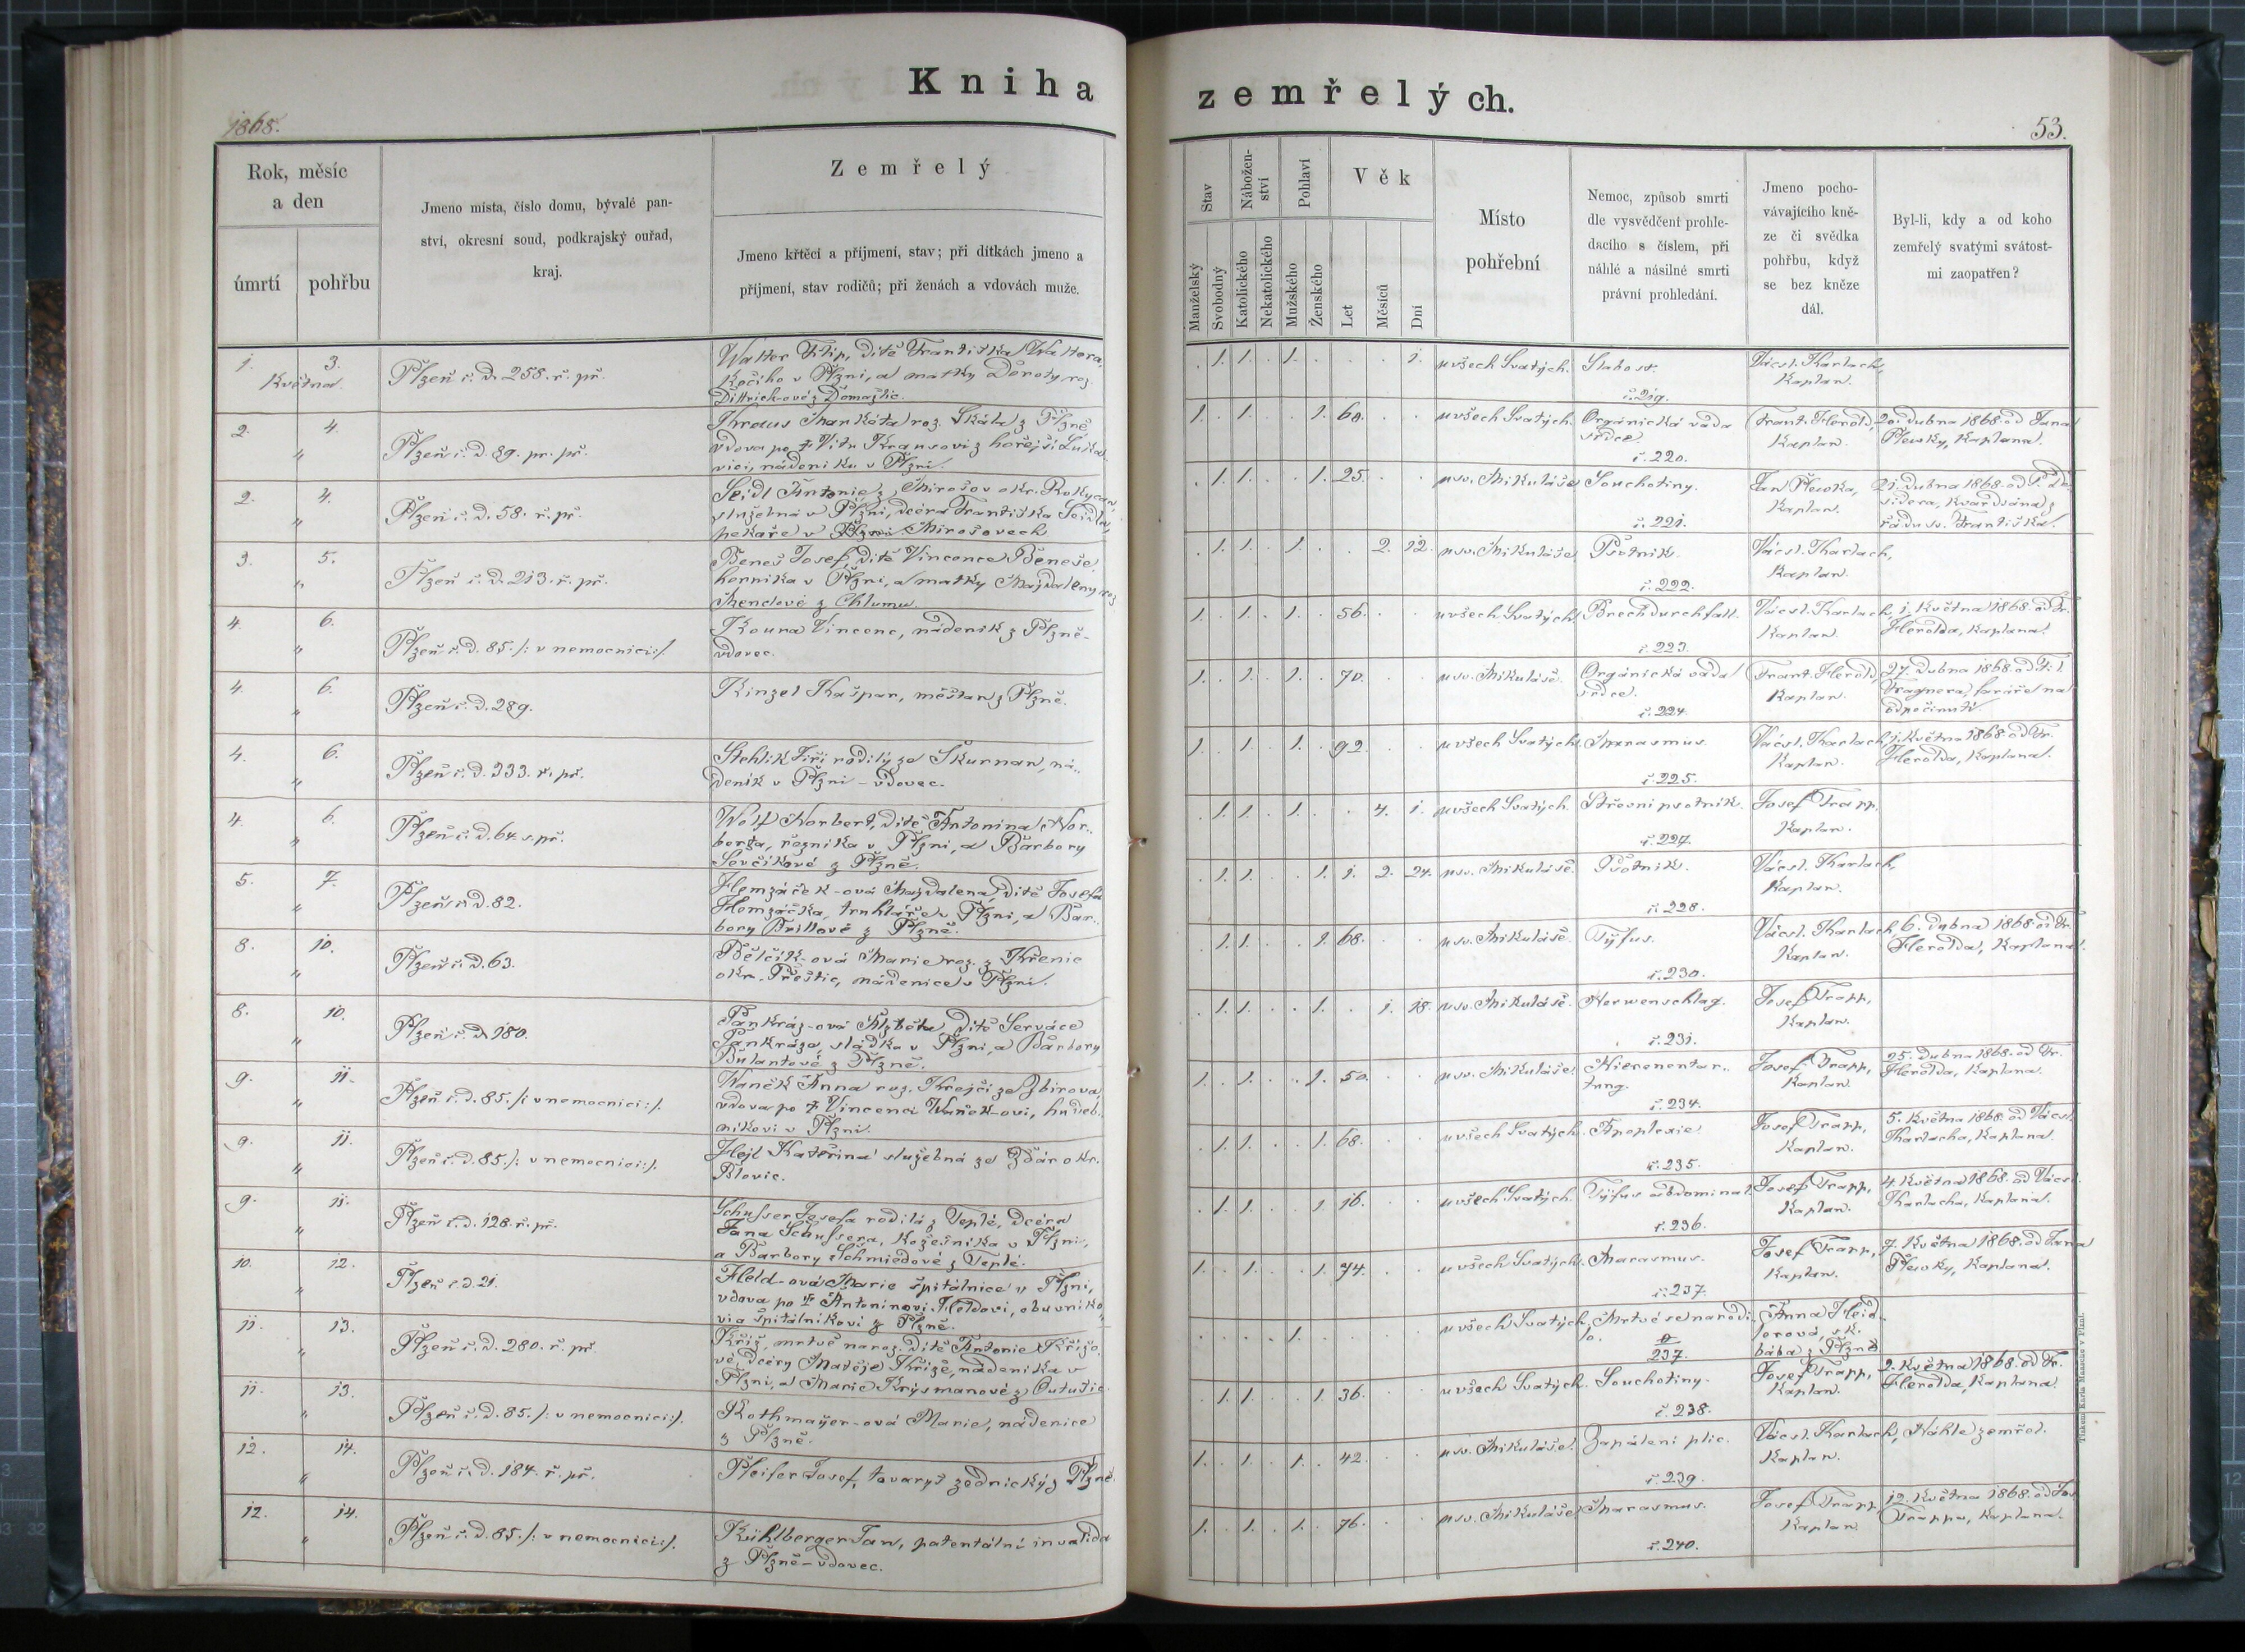 Kniha
1868.
Rok, měsíc
a den
úmrtí
pohřbu
Jmeno místa, číslo domu, bývalé pan-
ství, okresní soud, podkrajský ouřad,
kraj.
Zemřelý
Jmeno křtěcí a příjmení, stav; při dítkách jmeno a
příjmení, stav rodičů; při ženách a vdovách muže.
1. 3.
Května
Plzeň č. d. 258. ř. př.
Walter Filip, dítě Františka Waltera,
kočího v Plzni, a matky Doroty roz.
Dittrich-ové z Domažlic.
2. 4.
"
Plzeň č. d. 89. pr. př.
Kraus Markéta roz. Skála z Plzně
vdova po † Vítu Krausovi z hořejší Luka-
vici, nádeníku v Plzni.
2. 4.
"
Plzeň č. d. 58. ř. př.
Seidl Antonie z Mirošov okr. Rokycan,
služebná v Plzni, dcera Františka Seidla,
pekaře v Mirošovech
3. 5.
"
Plzeň č. d. 213. ř. př.
Beneš Josef, dítě Vincence Beneše,
horníka v Plzni, a matky Majdaleny roz
Menclové z Chlumu.
4. 6.
"
Plzeň č. d. 85. /: v nemocnici :/.
Koura Vincenc, nádeník z Plzně-
vdovec.
4. 6.
"
Plzeň č. d. 289.
Kinzel Kašpar, měštan z Plzně.
4. 6.
"
Plzeň č. d. 333. ř. př.
Stehlik Jiří rodilý ze Skurnan, ná-
deník v Plzni - vdovec.
4. 6.
"
Plzeň č. d. 64. s. př.
Wolf Norbert, dítě Antonina
řezníka v Plzni, a Barbory
Ševčíkové z Plzně.
5. 7.
"
Plzeň č. d. 82.
Hemzáček-ová Majdalena, dítě Josefa
Hemzáčka, truhláře v Plzni, a Bar-
bory Brillové z Plzně.
8. 10.
"
Plzeň č. d. 63.
Bělčik-ová Marie roz. z Křenic
okr. Přeštic, nádenice v Plzni.
8. 10.
"
Plzeň č. d. 180.
Pankráz-ová Alžběta, dítě Serváce
Pankráze, sládka v Plzni, a Barbory
Bulantové z Plzně.
9. 11.
"
Plzeň č. d. 85. /: v nemocnici :/.
Waněk Anna roz. Krejčí ze Zbirova,
vdova po † Vincenci Waněk-ovi, hudeb-
níkovi v Plzni.
9. 11.
"
Plzeň č. d. 85. /: v nemocnici :/.
Hejl Kateřina služebná ze Ždár okr.
Blovic.
9. 11.
"
Plzeň č. d. 128. ř. př.
Schusser Josefa rodilá z Teplé, dcéra
Jana Schussera, kožešníka v Plzni,
a Barbory Schmiedové z Teplé.
10. 12.
"
Plzeň č d. 21.
Held-ová Marie špitálnice v Plzni,
vdova po † Antoninovi Heldovi, obuvníko
vi a špitálníkovi z Plzně.
11. 13.
"
Plzeň č. d. 280. ř. př.
Kříž, mrtvě naroz. dítě Antonie Křížo-
vé, dcéry Matěje Kříže, nádeníka v
Plzni, a Marie Krýsmanové z Outušic.
11. 13.
"
Plzeň č. d. 85. /: v nemocnici :/.
Rothmayer-ová Marie, nádenice
z Plzně.
12. 14.
"
Plzeň č. d. 184. ř. př.
Pleifer Josef, tovaryš zednický z Plzně.
12. 14.
"
Plzeň č. d. 85. /: v nemocnici :/.
Kühlberger Jan, patentální invalida
z Plzně - vdovec.
zemřelých.
53.
Stav
Nábožen-
ství
Pohlaví
Věk
Manželský
Svobodný
Katolického
Nekatolického
Mužského
Ženského
Let
Měsíců
Dní
Místo
pohřební
Nemoc, způsob smrti
dle vysvědčení prohle-
dacího s číslem, při
náhlé a násilné smrti
právní prohledání.
Jmeno pocho-
vávajícího kně-
ze či svědka
pohřbu, když
se bez kněze
dál.
Byl-li, kdy a od koho
zemřelý svatými svátost-
mi zaopatřen?
. 1. 1. . 1. . . . 1. u všech Svatých. Slabost. Vácsl. Karlach,
Kaplan.
č. 219.
1. . 1. . . 1. 68. . . u všech Svatých. Orgánická váda Frant. Herold, 20. dubna 1868. od Jana
srdce. Kaplan. Plewky, Kaplana.
č. 220.
. 1. 1. . . 1. 25. . . u sv. Mikuláše Souchotiny. Jan Plewka, 21. dubna 1868. od
Kaplan. kvardiána z
č. 221. řádu sv. Františka.
. 1. 1. . 1. . . 2. 12. u sv. Mikuláše Psotník. Vácsl. Karlach,
Kaplan.
č. 222.
1. . 1. . 1. . 56. . . u všech Svatých. Brechdurchfall. Vácsl. Karlach, 1. Května 1868. od Fr.
Kaplan. Herolda, Kaplana.
č. 223.
1. . 1. . 1. . 70. . . u sv. Mikuláše. Orgánická váda Frant. Herold, 27. dubna 1868. od
srdce. Kaplan. Wagnera, faráře na
č. 224. odpočinutí.
1. . 1. . 1. . 92. . . u všech Svatých. Marasmus. Vácsl. Karlach, 1. Května 1868. od Fr.
Kaplan. Herolda, Kaplana.
č. 225.
. 1. 1. . 1. . . 4. 1. u všech Svatých. Střevní psotník. Josef Trapp,
Kaplan.
č. 227.
. 1. 1. . . 1. 1. 2. 24. u sv. Mikuláše. Psotník. Vácsl. Karlach,
Kaplan.
č. 228.
. 1. 1. . . 1. 68. . . u sv. Mikuláše. Týfus. Vácsl. Karlach, 6. dubna 1868. od Fr.
Kaplan. Herolda, Kaplana.
č. 230.
. 1. 1. . . 1. . 1. 18. u sv. Mikuláše. Nerwenschlag. Josef Trapp,
Kaplan.
č. 231.
1. . 1. . . 1. 50. . . u sv. Mikuláše. Nierenentar- Josef Trapp, 25. dubna 1868. od Fr.
tung. Kaplan. Herolda, Kaplana.
č. 234.
. 1. 1. . . 1. 68. . . u všech Svatých. Apoplexie. Josef Trapp, 5. Května 1868. od Vácsl.
Kaplan. Karlacha, Kaplana.
č. 235.
. 1. 1. . . 1. 16. . . u všech Svatých. Týfus abdominal. Josef Trapp, 4. Května 1868. od Vácsl.
Kaplan. Karlacha, Kaplana.
č. 236.
1. . 1. . . 1. 74. . . u všech Svatých. Marasmus. Josef Trapp, 7. Května 1868. od Jana
Kaplan. Plewky, Kaplana.
č. 237.
. . . . 1. . . . . u všech Svatých. Mrtvé se narodi- Anna Heid-
lo. lerová, zk.
237. bába z Plzně
. 1. 1. . . 1. 36. . . u všech Svatých. Souchotiny. Josef Trapp, 2. Května 1868. od Fr.
Kaplan. Herolda, Kaplana.
č. 238.
1. . 1. . 1. . 42. . . u sv. Mikuláše. Zapálení plic. Vácsl. Karlach, Náhle zemřel.
Kaplan.
č. 239.
1. . 1. . 1. . 76. . . u sv. Mikuláše Marasmus. Josef Trapp, 12. Května 1868. od Jos.
Kaplan. Trappa, Kaplana.
č. 240.
Tiskem Karla Maasche v Plzni.